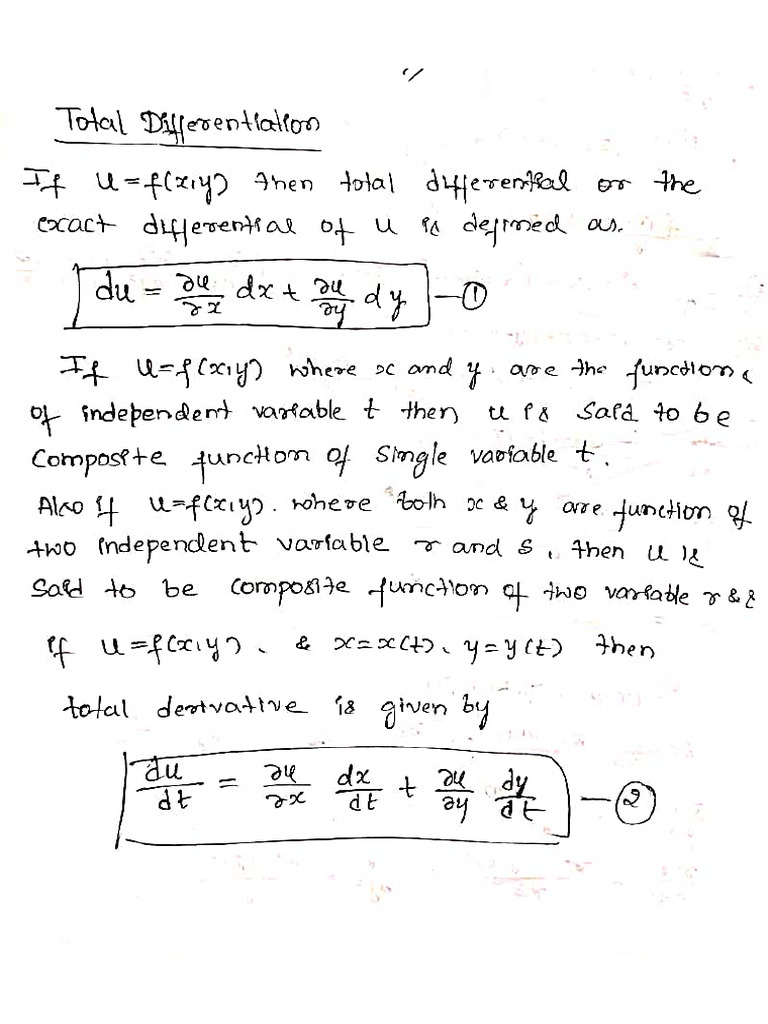 Total Differentiation
If u=f(x,y) then total differential or the
exact differential of u is defined as.
du = ∂u/∂x dx + ∂u/∂y dy —①
If u=f(x,y) where x and y are the functions
of independent variable t then u is said to be
Composite function of single variable t.
Also if u=f(x,y). where both x & y are function of
two independent variable r and s, then u is
said to be composite function of two variable r & s
if u=f(x,y), & x=x(t), y=y(t) then
total derivative is given by
du/dt = ∂u/∂x dx/dt + ∂u/∂y dy/dt —②